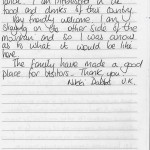 food and drinks of this country.
Very friendly welcome. I am
staying on the other side of the
mountain and so I was curious
as to what it would be like
here.
The family have made a good
place for visitors. Thank you
U.K.